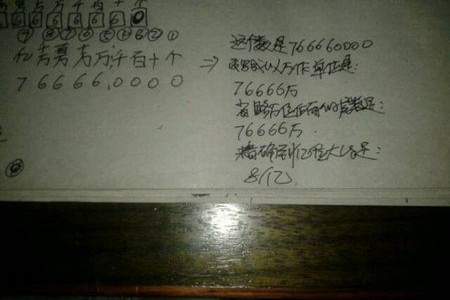 7 6 6 6 6 0
⑦ ⑥ ⑤ ④ ③ ② ①
亿 千 百 十 万 千 百 十 个
7 6 6 6 6 0 0 0 0
⇒
这个数是766660000
改写成以万作单位是:
76666万
省略万位后面的尾数是:
76666万.
精确到亿位大约是:
8亿